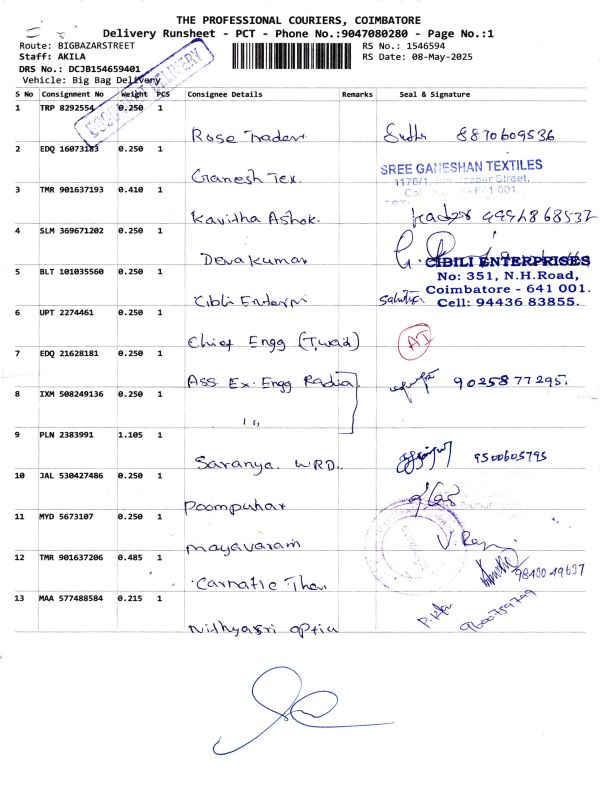 THE PROFESSIONAL COURIERS, COIMBATORE
Delivery Runsheet - PCT - Phone No.:9047080280 - Page No.:1
Route: BIGBAZARSTREET RS No.: 1546594
Staff: AKILA RS Date: 08-May-2025
DRS No.: DCJB154659401
Vehicle: Big Bag Delivery
DELIVERY
S No Consignment No Weight PCS Consignee Details Remarks Seal & Signature
1 TRP 8292554 0.250 1
Rose Traders Sudha 8870609536
2 EDQ 16073183 0.250 1
Ganesh Tex. SREE GANESHAN TEXTILES
1176/1, Bazaar Street,
641 001
3 TMR 901637193 0.410 1
Kavitha Ashok.
4 SLM 369671202 0.250 1
Devakumar
CIBILI ENTERPRISES
5 BLT 101035560 0.250 1 No: 351, N.H.Road,
Coimbatore - 641 001.
Cibli Enterpri Cell: 94436 83855.
6 UPT 2274461 0.250 1
Chief Engg (Twad) AI
7 EDQ 21628181 0.250 1
Ass. Ex. Engg Radia 9025877295.
8 IXM 508249136 0.250 1
"
9 PLN 2383991 1.105 1
Saranya. WRD. 9500605795
10 JAL 530427486 0.250 1
Poompuhar
11 MYD 5673107 0.250 1
mayavaram
12 TMR 901637206 0.485 1
98430 49637
Carnatic Ther
13 MAA 577488584 0.215 1 9600759749
Nithyasri optic